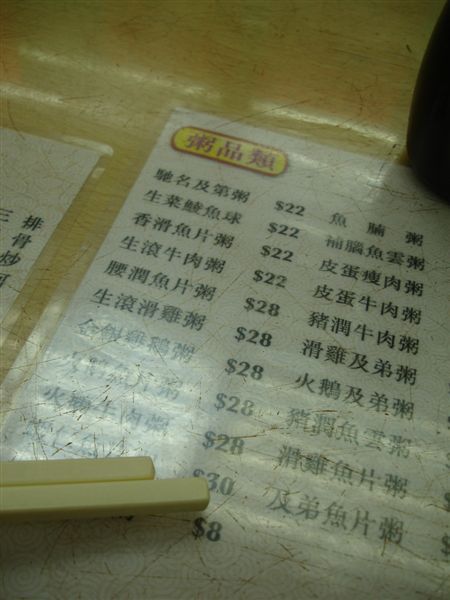 粥品類
馳名及第粥 $22 魚腩粥
生菜鯪魚球 $22 補腦魚雲粥
香滑魚片粥 $22 皮蛋瘦肉粥
生滾牛肉粥 $28 皮蛋牛肉粥
腰潤魚片粥 $28 豬潤牛肉粥
生滾滑雞粥 $28 滑雞及弟粥
金銀雞鵝粥 $28 火鵝及弟粥
魚片粥 $28 豬潤魚雲粥
火鵝牛肉粥 $30 滑雞魚片粥
$8 及弟魚片粥
三 排
骨
炒
河